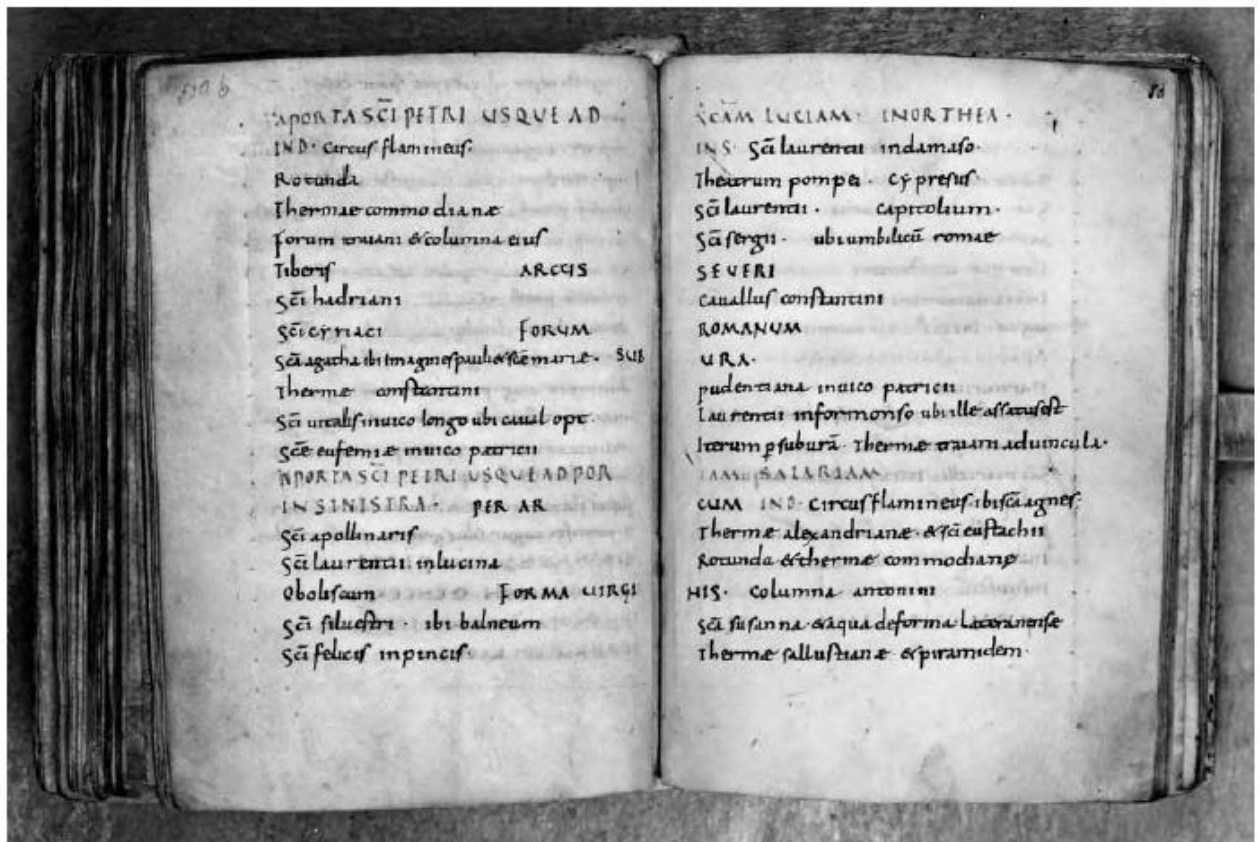 APORTA SC̄I PETRI USQUE AD
IND· Circus flamineus·
Rotunda
Thermae commodianæ
forum traiani & columna eius
Tiberis ARCUS
Sc̄i hadriani
Sc̄i cyriaci FORUM
Sc̄a agatha ibi imagines pauli & scē mariæ· SUB
Thermæ constantini
Sc̄i uitalis in uico longo ubi cauall opt·
Scē eufemiæ in uico patricii
APORTA SC̄I PETRI USQUE AD POR
IN SINISTRA· PER AR
Sc̄i apollinaris
Sc̄i laurentii in lucina
Oboliscum FORMA UIRGI
Sc̄i siluestri· ibi balneum
Sc̄i felicis in pincis·
86
SC̄AM LUCIAM· IN ORTHEA·
INS· Sc̄i laurentii in damaso·
Theatrum pompei· Cypresus
Sc̄i laurentii· Capitolium·
Sc̄i sergii· ubi umbilicū romae
SEUERI
Cauallus constantini
ROMANUM
URA·
pudentiana in uico patricii
Laurentii in formonso ubi ille assatus est
Iterum p suburā· Thermæ traiani ad uincula·
TAM SALARIAM
CUM IND· Circus flamineus· ibi sc̄a agnes·
Thermæ alexandrianæ· & sc̄i eustachii
Rotunda & thermæ commodianę
NIS· Columna antonini
Sc̄a susanna· & aqua de forma lateranense
Thermæ sallustianæ & piramidem·